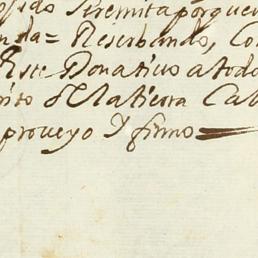 ofido Seremita porque
nda = Reserbando, Co
Este Donativo atodo
rito de la tierra Ca
proveyo Y firmo